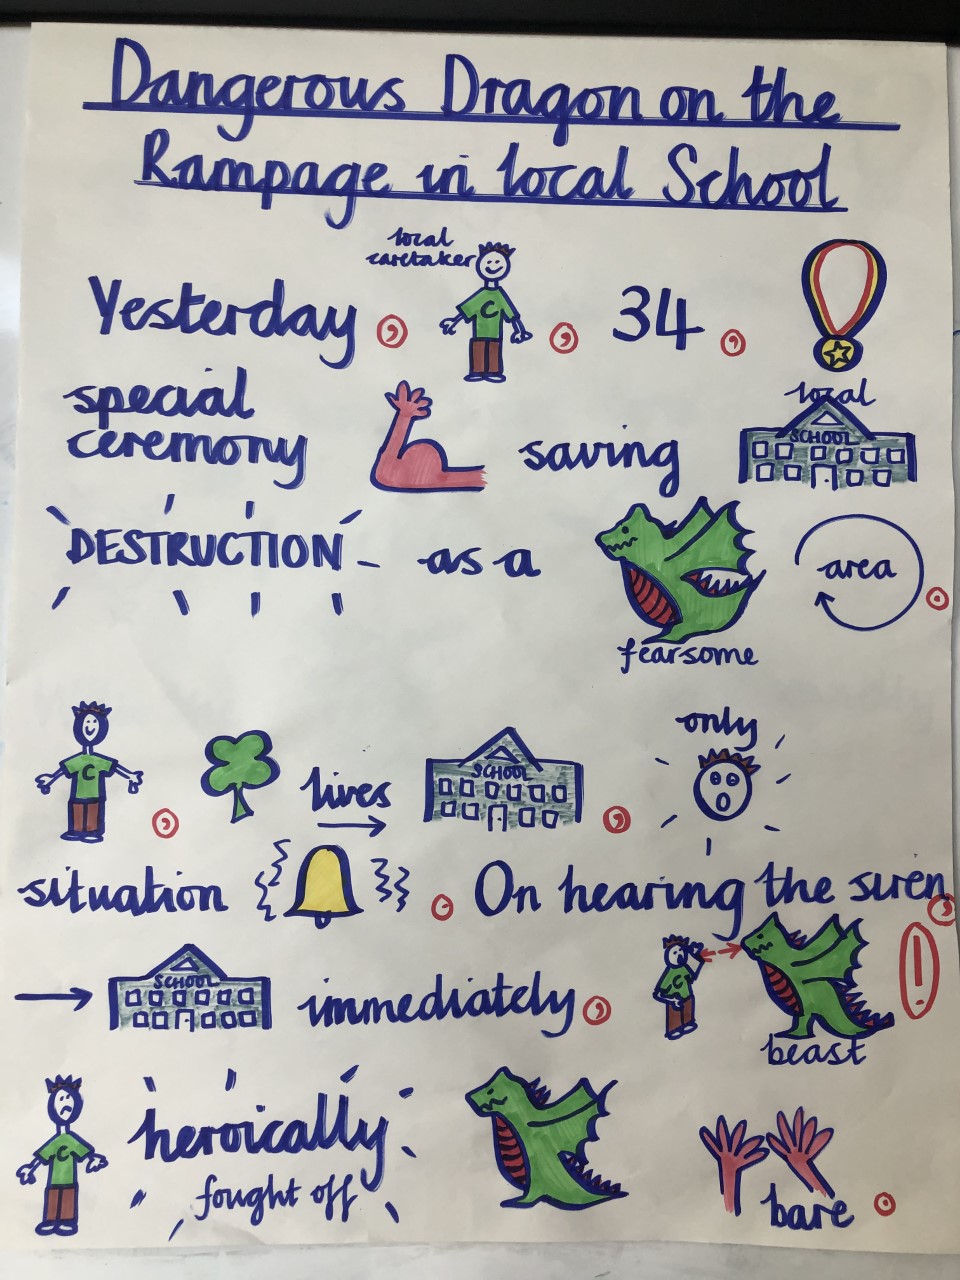 Dangerous Dragon on the
Rampage in local School
local
caretaker
Yesterday, C, 34,
special
ceremony
saving
local
SCHOOL
DESTRUCTION as a
fearsome
area.
C,
lives
SCHOOL,
only
situation. On hearing the siren,
SCHOOL
immediately,
C
beast
!
C
heroically
fought off
bare.